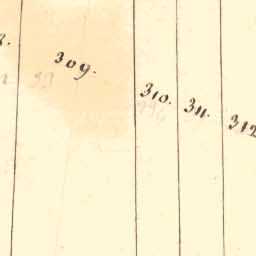 309.
310.
311.
312